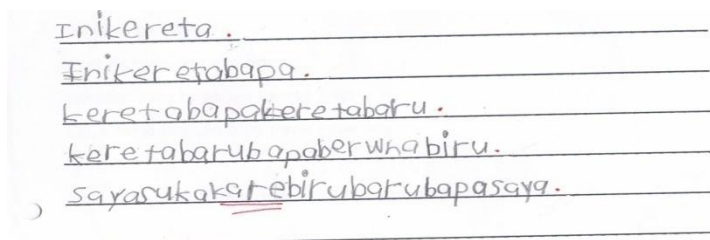 Inikereta.
Inikeretabapa.
keretabapakeretabaru.
keretabarubapaberwnabiru.
sayasukakarebirubarubapasaya.